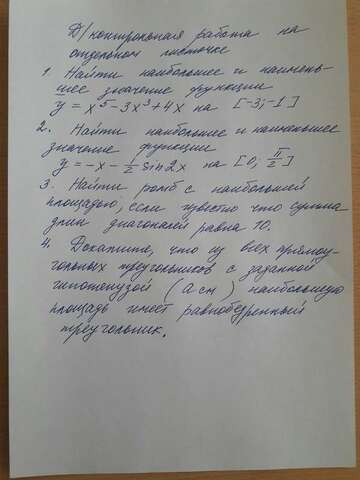 Д/контрольная работа на
отдельном листочке
1. Найти наибольшее и наимень-
шее значение функции
y = x⁵ - 3x³ + 4x на [-3; -1]
2. Найти наибольшее и наименьшее
значение функции
y = -x - 1/2 sin2x на [0; π/2]
3. Найти ромб с наибольшей
площадью, если известно что сумма
длин диагоналей равна 10.
4. Докажите, что из всех прямоу-
гольных треугольников с заданной
гипотенузой (а см) наибольшую
площадь имеет равнобедренный
треугольник.